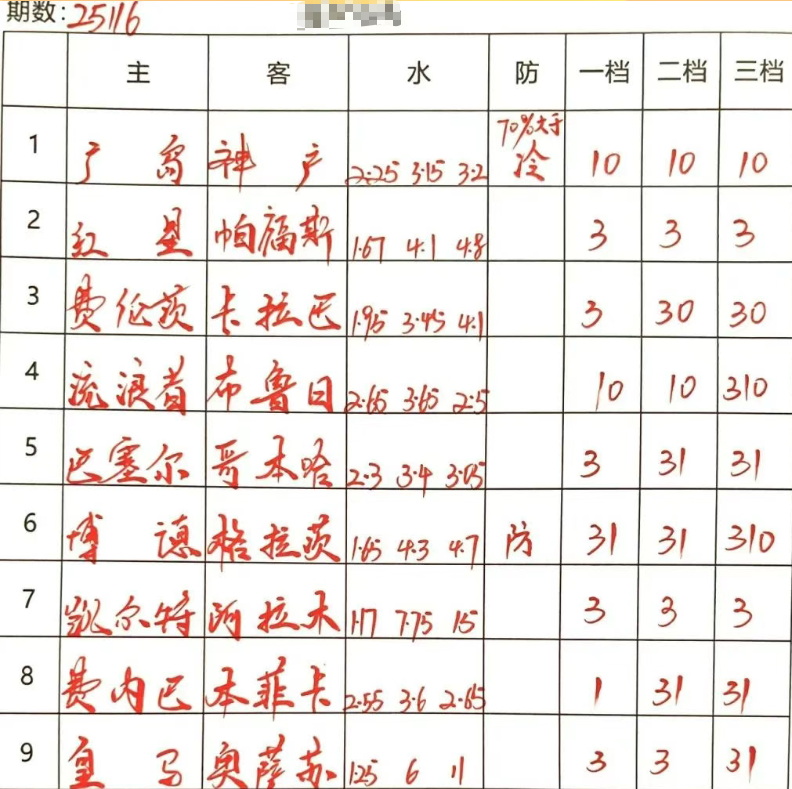 期数:25116
主 客 水 防 一档 二档 三档
1 广岛 神户 2.25 3.15 3.2 70%大于冷 10 10 10
2 红星 帕福斯 1.67 4.1 4.8 3 3 3
3 费伦茨 卡拉巴 1.95 3.45 4.1 3 30 30
4 流浪者 布鲁日 2.65 3.65 2.5 10 10 310
5 巴塞尔 哥本哈 2.3 3.4 3.05 3 31 31
6 博德 格拉茨 1.65 4.3 4.7 防 31 31 310
7 凯尔特 阿拉木 1.17 7.75 15 3 3 3
8 费内巴 本菲卡 2.55 3.6 2.65 1 31 31
9 皇马 奥萨苏 1.25 6 11 3 3 31